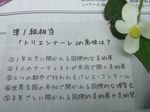 準1級相当
「トリエンナーレ」の意味は?
①1年おきに開かれる国際的な美術展
②3人のアーティストが共同で開く美術展
③三つの都市で行われるバレエ・コンクール
④世界各国の参加で開かれる国際的な博覧会
⑤3年ごとに開かれる国際的な美術展や展覧会